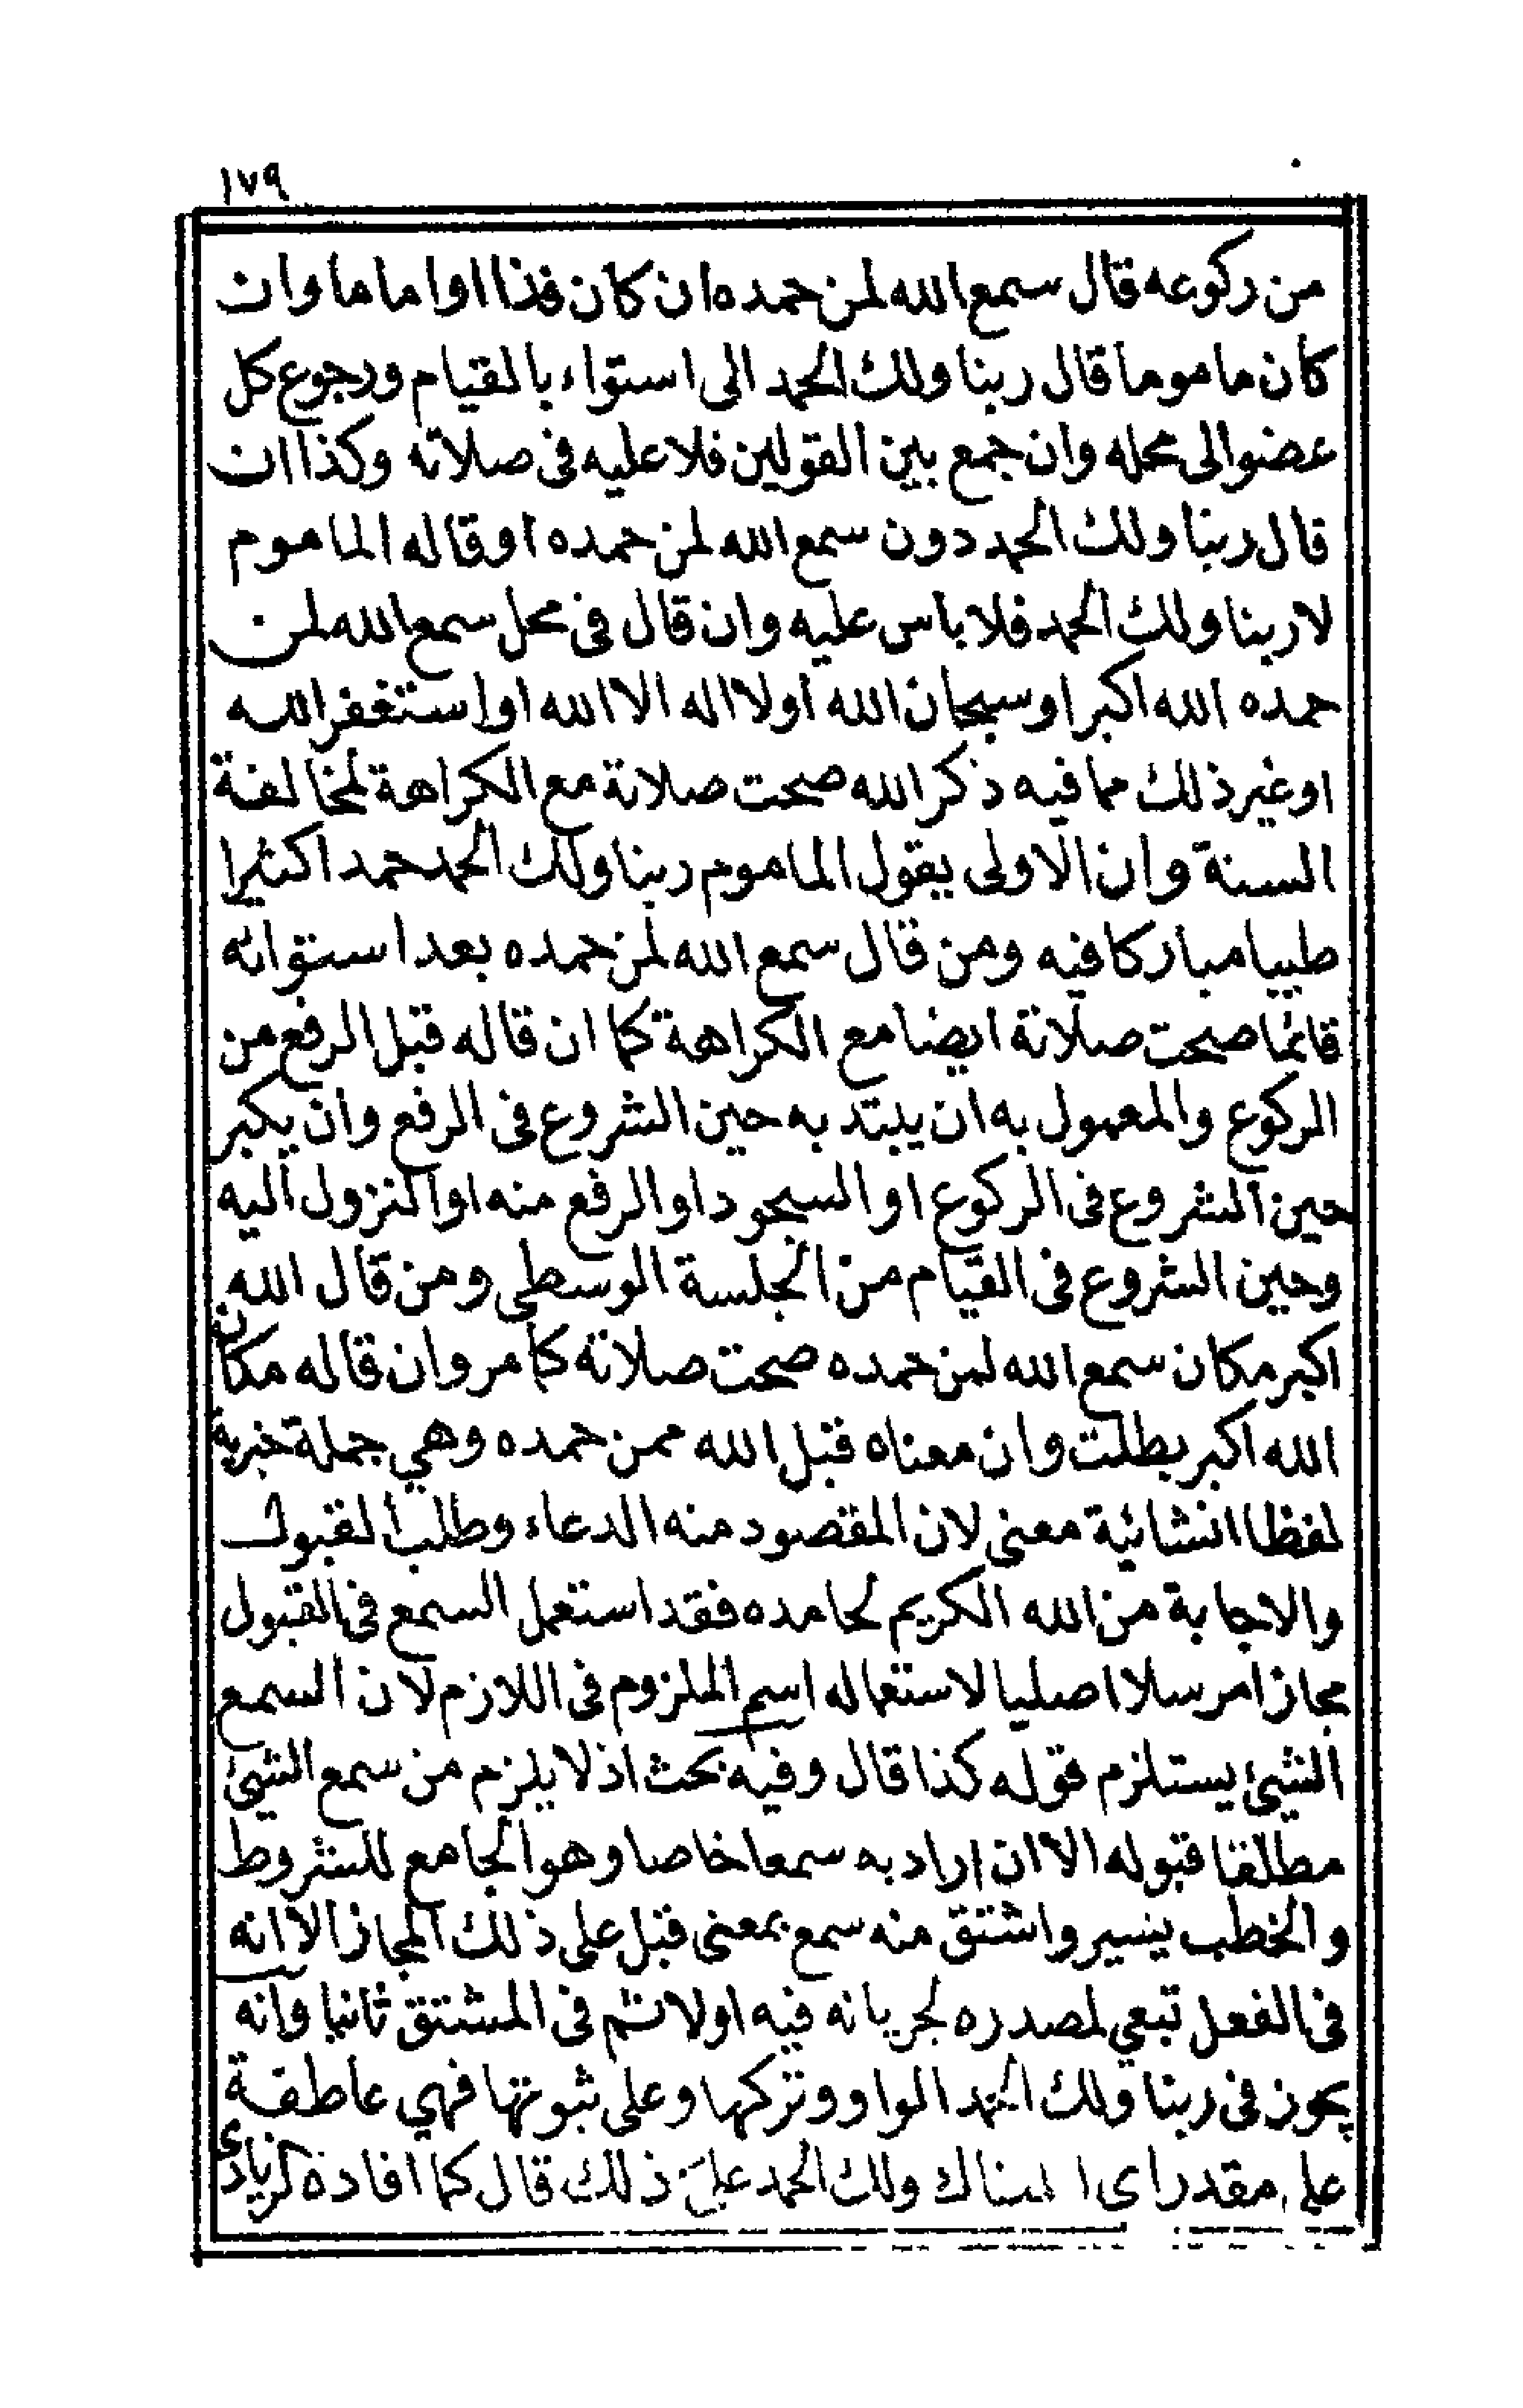 ١٧٩
من ركوعه قال سمع الله لمن حمده ان كان فذا او اماما وان
كان ماموما قال ربنا ولك الحمد الى استواء بالقيام ورجوع كل
عضو الى محله وان جمع بين القولين فلا عليه فى صلاته وكذا ان
قال ربنا ولك الحمد دون سمع الله لمن حمده او قاله الماموم
لا ربنا ولك الحمد فلا باس عليه وان قال فى محل سمع الله لمن
حمده الله اكبر او سبحان الله او لا اله الا الله او استغفر الله
او غير ذلك مما فيه ذكر الله صحت صلاتة مع الكراهة لمخالفة
السنة وان الاولى يقول الماموم ربنا ولك الحمد حمدا كثيرا
طيبا مباركا فيه ومن قال سمع الله لمن حمده بعد استوائه
قائما صحت صلاتة ايضا مع الكراهة كما ان قاله قبل الرفع من
الركوع والمعمول به ان يبتد به حين الشروع فى الرفع وان يكبر
حين الشروع فى الركوع او السجود او الرفع منه او النزول اليه
وحين الشروع فى القيام من الجلسة الوسطى ومن قال الله
اكبر مكان سمع الله لمن حمده صحت صلاته كما مر وان قاله مكان
الله اكبر بطلت وان معناه قبل الله ممن حمده وهي جملة خبرية
لفظا انشائية معنى لان المقصود منه الدعاء وطلب القبول
والاجابة من الله الكريم لحامده فقد استعمل السمع فى القبول
مجازا مرسلا اصليا لاستعماله اسم الملزوم فى اللازم لان السمع
الشيئ يستلزم قوله كذا قال وفيه بحث اذ لا يلزم من سمع الشيئ
مطلقا قبوله الا ان اراد به سمعا خاصا وهو الجامع للشروط
والخطب يسير واشتق منه سمع بمعنى قبل على ذلك المجاز الا انه
فى الفعل تبعي لمصدره لجريانه فيه اولا ثم فى المشتق ثانيا وانه
يجوز فى ربنا ولك الحمد الواو وتركها وعلى ثبوتها فهي عاطفة
على مقدر اى ولك الحمد على ذلك قال كما افاده زكريا